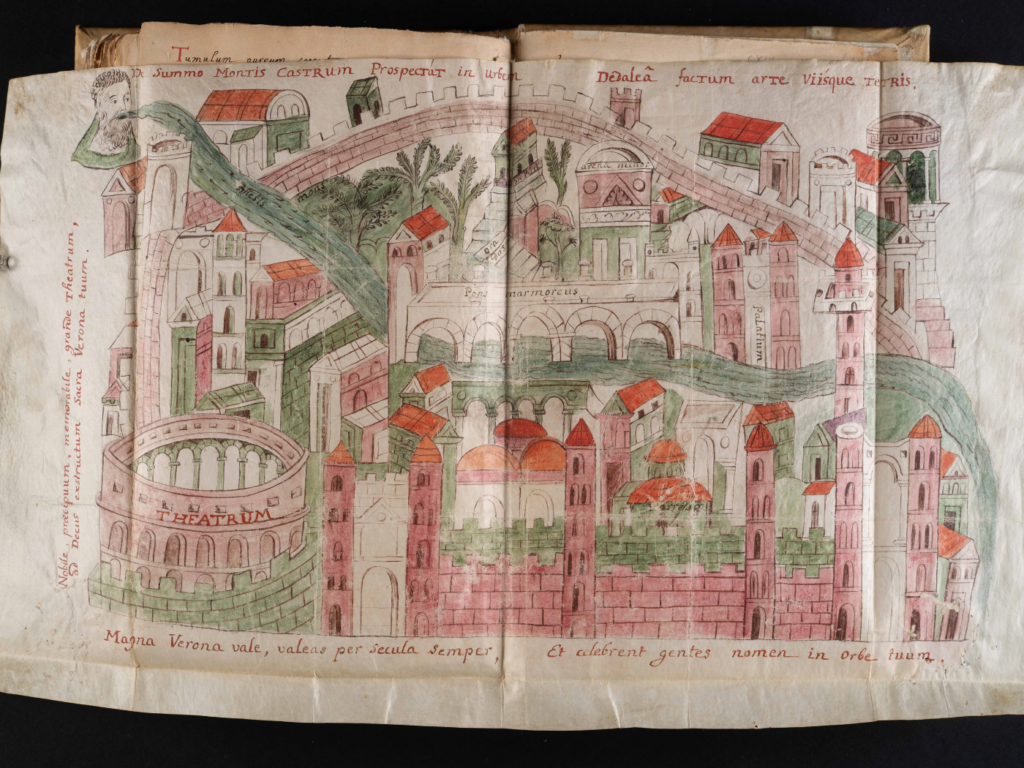 Tumulum aureum
De Summo Montis Castrum Prospectat in Urbem Dedaleâ factum arte Viisque tetris.
Nobile, præcipuum, memorabile, grande Theatrum,
Ad Decus exstructum Sacra Verona tuum.
arena minor
Pons marmoreus
Palatium
THEATRUM
Magna Verona vale, valeas per secula semper,
Et celebrent gentes nomen in Orbe tuum.